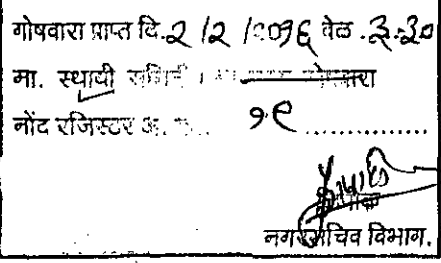 गोषवारा प्राप्त दि. २ / २ / २०१६ वेळ . ३-३०
मा. स्थायी समिती
नोंद रजिस्टर अ. क्र... १९
नगरसचिव विभाग.